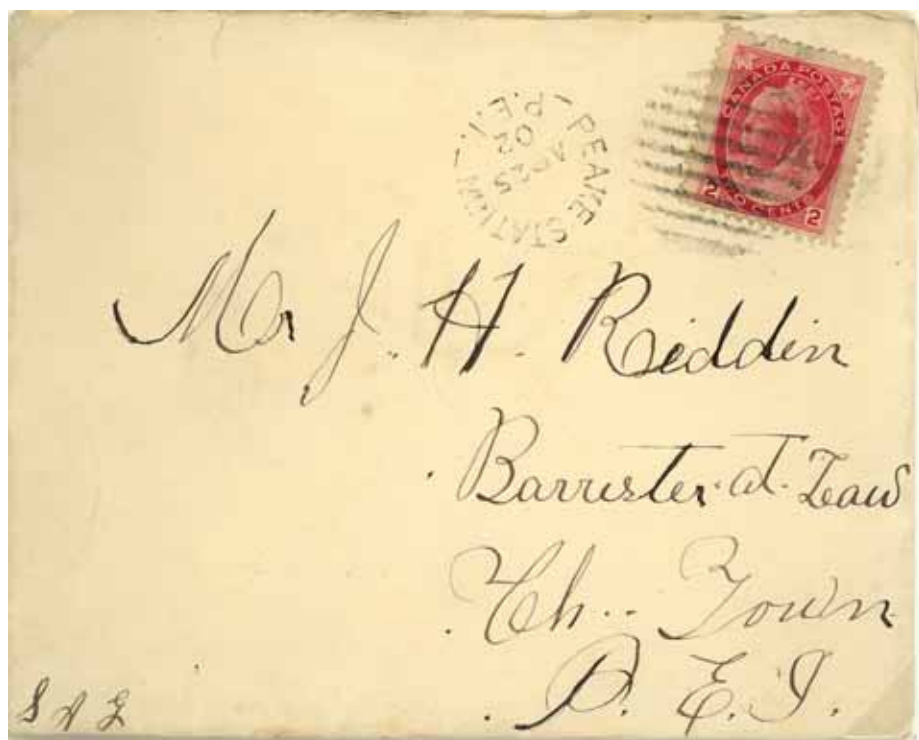 CANADA POSTAGE
2 CENTS 2
PEAKE STATION
AP 25
02
P.E.I.
Mr J. H. Riddin
Barrister. at. Law
Ch.. Town
P. E. I.